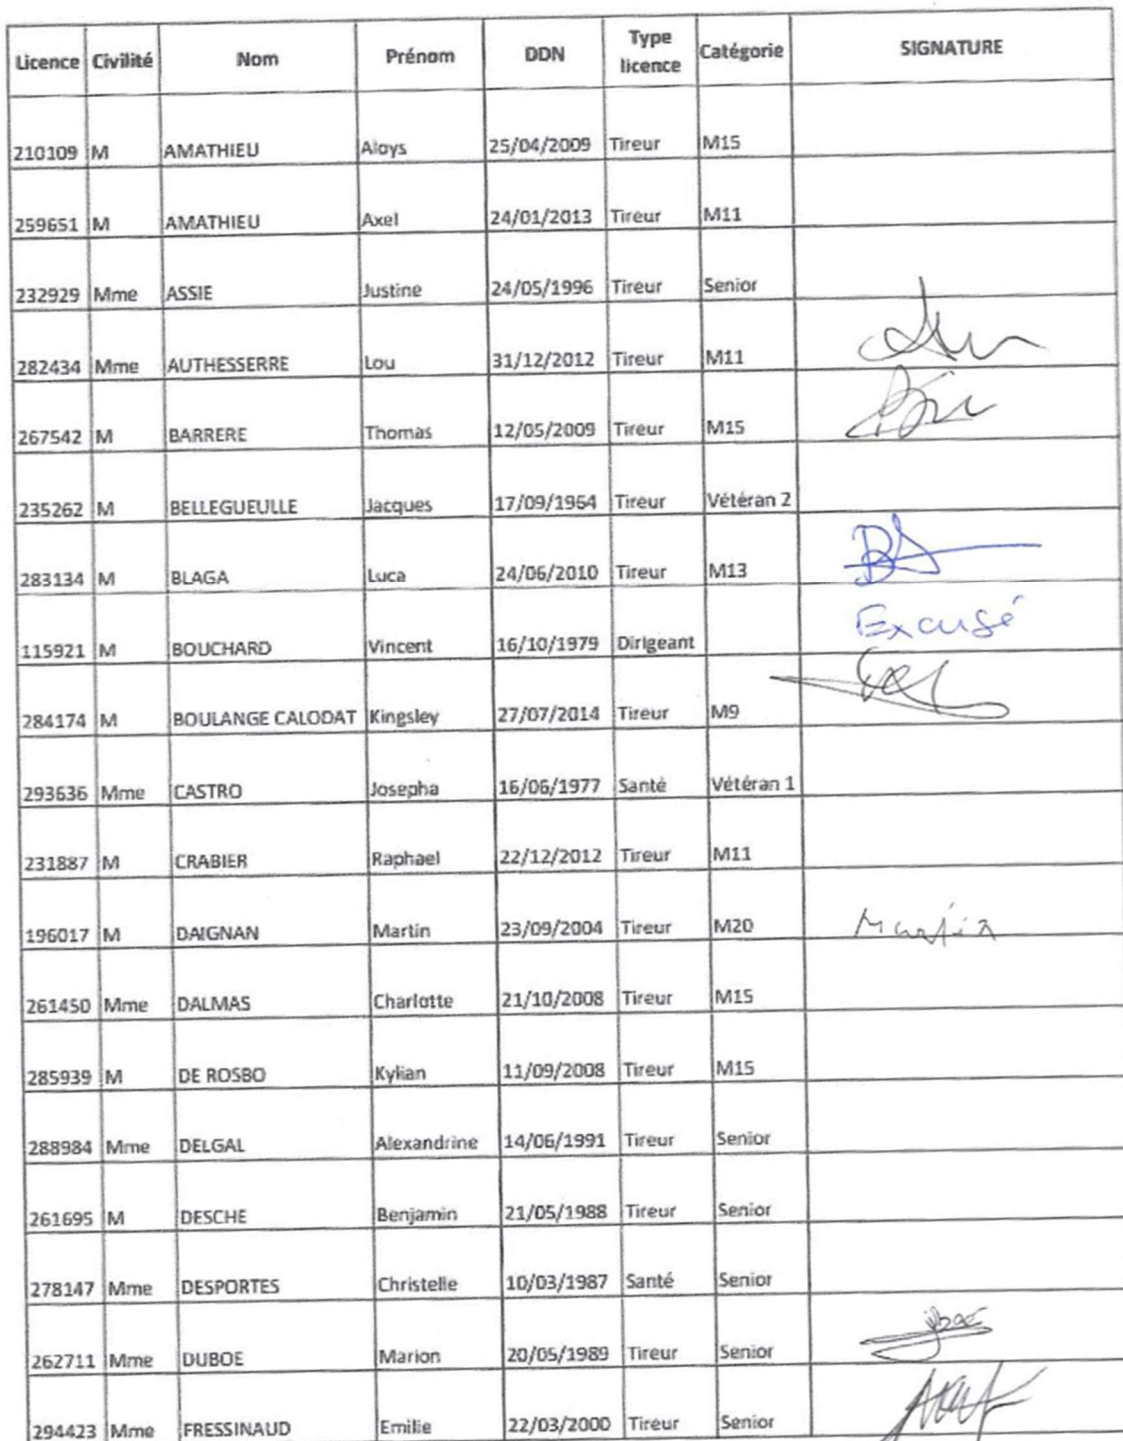 Licence Civilité Nom Prénom DDN Type licence Catégorie SIGNATURE
210109 M AMATHIEU Aloys 25/04/2009 Tireur M15
259651 M AMATHIEU Axel 24/01/2013 Tireur M11
232929 Mme ASSIE Justine 24/05/1996 Tireur Senior
282434 Mme AUTHESSERRE Lou 31/12/2012 Tireur M11
267542 M BARRERE Thomas 12/05/2009 Tireur M15
235262 M BELLEGUEULLE Jacques 17/09/1964 Tireur Vétéran 2
283134 M BLAGA Luca 24/06/2010 Tireur M13
115921 M BOUCHARD Vincent 16/10/1979 Dirigeant Excusé
284174 M BOULANGE CALODAT Kingsley 27/07/2014 Tireur M9
293636 Mme CASTRO Josepha 16/06/1977 Santé Vétéran 1
231887 M CRABIER Raphael 22/12/2012 Tireur M11
196017 M DAIGNAN Martin 23/09/2004 Tireur M20 Martin
261450 Mme DALMAS Charlotte 21/10/2008 Tireur M15
285939 M DE ROSBO Kylian 11/09/2008 Tireur M15
288984 Mme DELGAL Alexandrine 14/06/1991 Tireur Senior
261695 M DESCHE Benjamin 21/05/1988 Tireur Senior
278147 Mme DESPORTES Christelle 10/03/1987 Santé Senior
262711 Mme DUBOE Marion 20/05/1989 Tireur Senior
294423 Mme FRESSINAUD Emilie 22/03/2000 Tireur Senior